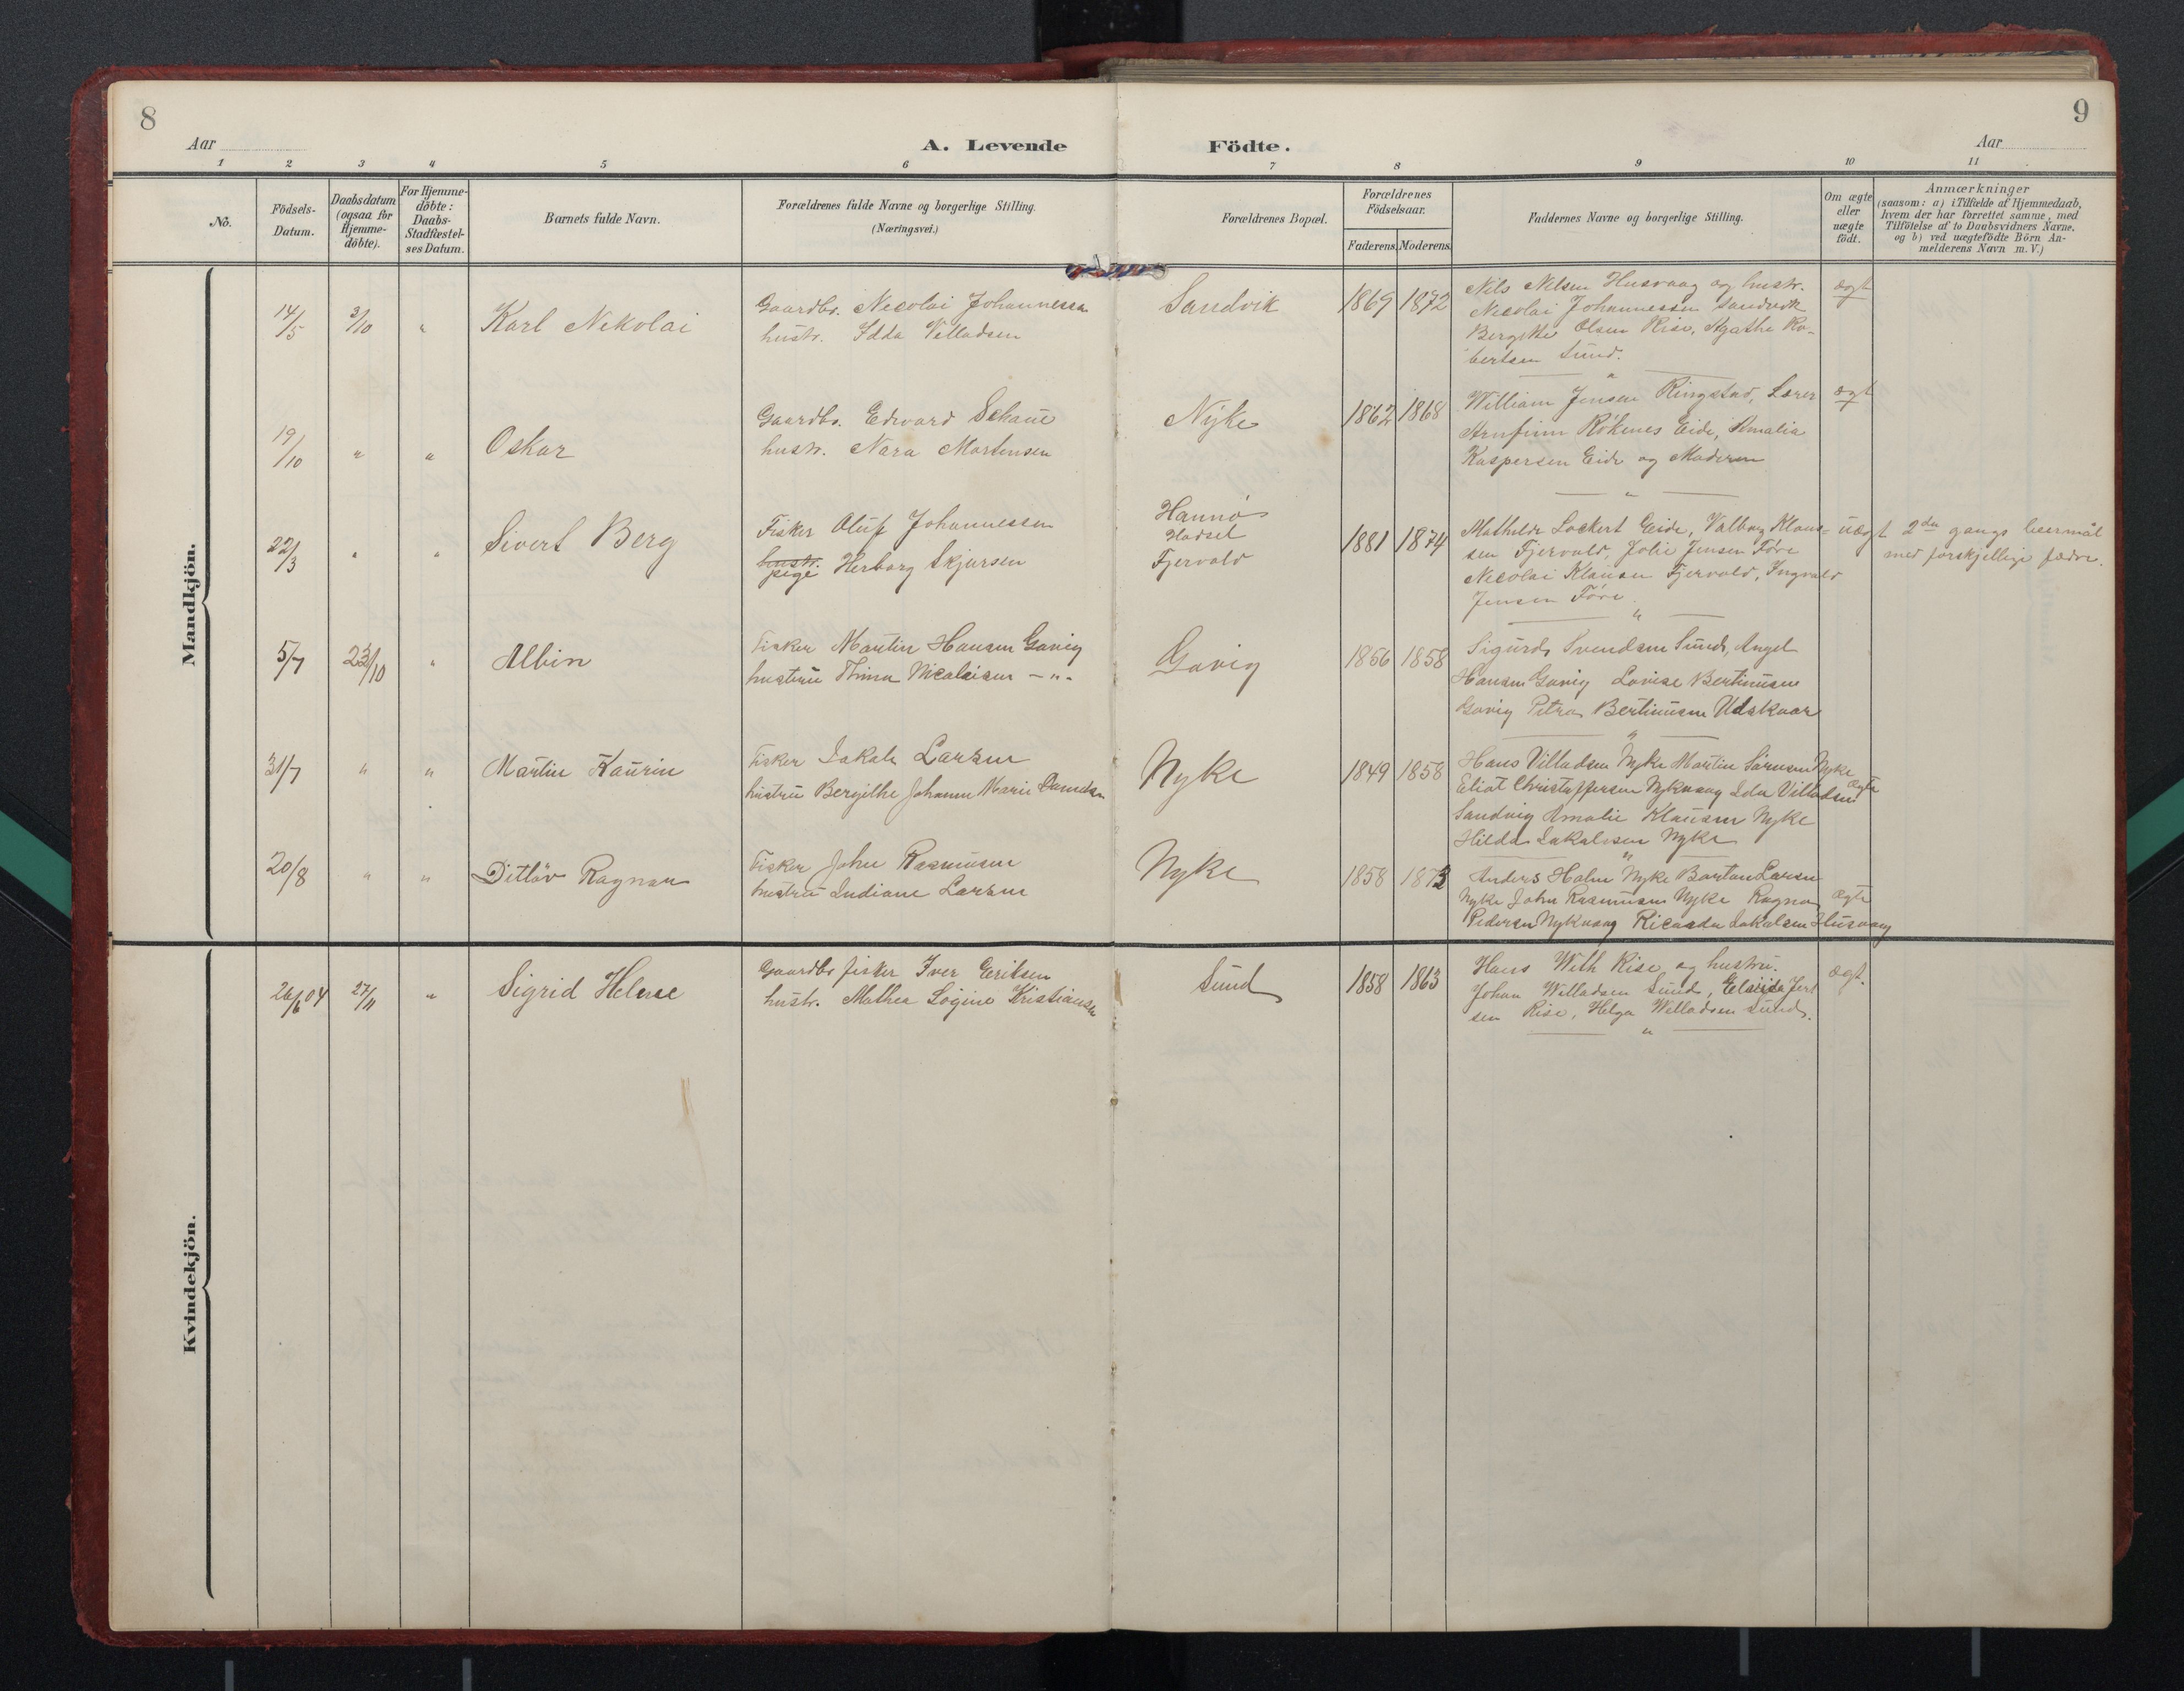 8
9
Aar
A. Levende Födte.
Aar
1 2 3 4 5 6 7 8 9 10 11
No.
Födsels-
Datum.
Daabsdatum
(ogsaa for
Hjemme-
döbte).
For Hjemme-
döbte:
Daabs-
Stadfæstel-
ses Datum.
Barnets fulde Navn.
Forældrenes fulde Navne og borgerlige Stilling.
(Næringsvei.)
Forældrenes Bopæl.
Forældrenes
Födselsaar.
Faderens. Moderens.
Faddernes Navne og borgerlige Stilling.
Om ægte
eller
uægte
födt.
Anmærkninger
(saasom: a) i Tilfælde af Hjemmedaab,
hvem der har forrettet samme, med
Tilföielse af to Daabsvidners Navne.
og b) ved uægtefödte Börn An-
melderens Navn m. V.)
Mandkjön.
14/5 3/10 " Karl Nekolai
Gaardbr. Necolai Johannessen
hustr. Idda Villadsen
Sandvik
1869 1872
Nils Nilsen Husvaag og hustr.
Necolai Johannessen Sandvik
Bergitte Olsen Rise, Agathe Ro-
bertsen Sund.
ægt
19/10 " " Oskar
Gaardbr. Edvard Schau
hustr. Nara Mortensen
Nyke
1862 1868
William Jensen Ringstad, Lærer
Arnfinn Rökenes Eide, Amalia
Kaspersen Eide og Moderen
ægt
22/3 " " Sivert Berg
Fisker Oluf Johannessen
hustr.
pige Herborg Skjarsen
Hannö
Hadsel
Fjervold
1881 1874
Mathilde Lockert Eide, Valborg Klau-
sen Fjervold, Jolie Jensen Före
Necolai Klausen Fjervold, Ingvald
Jensen Före.
uægt
2den gangs leiermål
med forskjellige fædre.
5/7 23/10 " Albin
Fisker Martin Hansen Gavig
hustru Thina Nicolaisen - " -
Gavig
1856 1858
Sigurd Svendsen Sund, Angel
Hansen Gavig Lovise Bertinusen
Gavig Petra Bertinusen Udskaar
31/7 " " Martin Kaurin
Fisker Jakob Larsen
hustru Bergithe Johanne Marie Danielsen
Nyke
1849 1858
Hans Villadsen Nyke Martin Sörensen Nyke
Eliot Christoffersen Nykvaag Ida Villadsen
Sandvig Amalie Klausen Nyke
Hilda Jakobsen Nyke
ægte
20/8 " " Ditlöv Ragnar
Fisker John Rasmusen
hustru Indiane Larsen
Nyke
1858 1873
Anders Holm Nyke Bortan Larsen
Nyke John Rasmusen Nyke Ragna
Pedersen Nykvaag Ricarda Jakobsen Husvaag
ægte
Kvindekjön.
26/6 04 27/11 " Sigrid Helene
Gaardbr fisker Iver Eriksen
hustr. Mathea Logine Kristiansen
Sund
1858 1863
Hans With Rise og hustru.
Johan Willadsen Sund, Elaida Jert
sen Rise, Helga Willadsen Sund.
ægt.